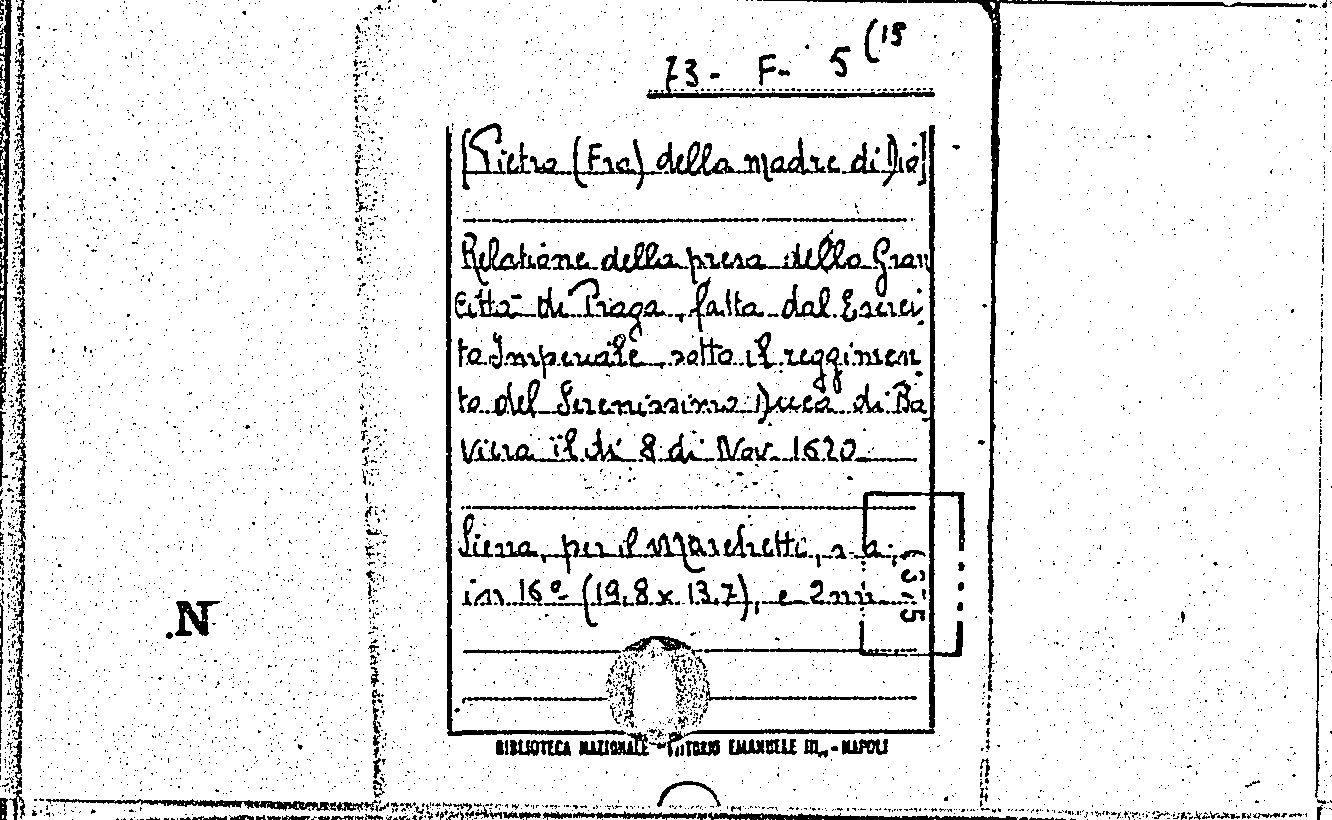 73- F- 5 (15
[Pietro (Fra) della madre di Dio]
Relatione della presa della Gran
Città di Praga, fatta dal Eserci
to Imperiale sotto il reggimen
to del Serenissimo Duca di Ba
viera il dì 8 di Nov. 1620
Siena, per il Marchetti, s. a.,
in 16º (19,8 x 13,7), c 2 nn
.N
BIBLIOTECA NAZIONALE - VITTORIO EMANUELE III,, - NAPOLI